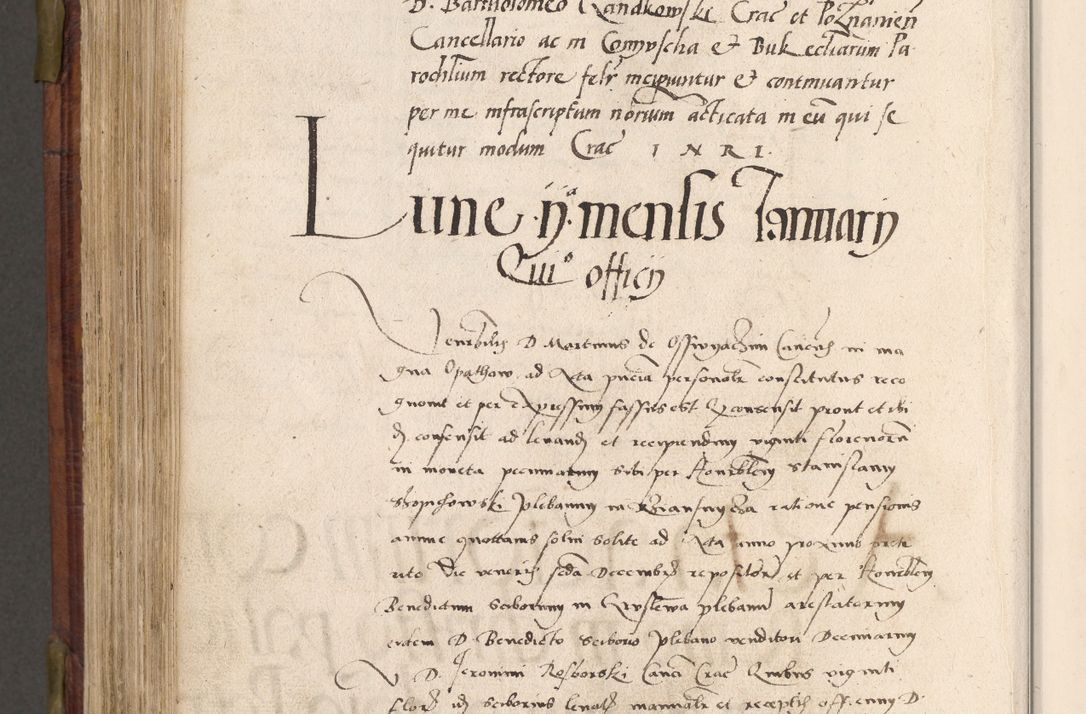 D. Bartholomeo Gandkowski Crac et Poznanien
Cancellario ac in Compscha & Buk eccliarum Pa
rochlium rectore felr incipiuntur & continuantur
per me infrascriptum norium acticata in eu qui se
quitur modum Crac I N R I
Lune ij.a mensis Januarij
Qui° officij
Venerbilis D Martinus de Osswyaczim Canonc in ma
gna Opathow ad Acta pncia personalr constitutus reco
gnouit et per expressum fassus est Q consensit prout et ibi
dz consensit ad leuandz et recipiendum viginti florenorum
in moneta pecuniarum sibi per Honorblem Stanislaum
plebanum in ratione pensionis
annue quottannis solui solite ad Acta anno proximo prete
rito die veneris seda Decembrz repositorz et per Honorblem
Benedictum Sciborium in plebanum arestatorum
eidem D Benedicto Sciborio plebano venditori Decimarum
V D Jeronimi Rosborski Canci Crac Quibus viginti
Florz idz Sciborius leuatz manualr et receptis offi D